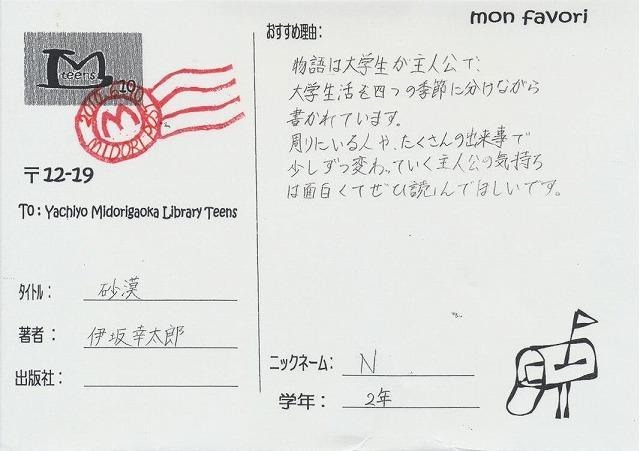 mon favori
M
teens
10
2010.6.30
MIDORI POST
M
〒12-19
To: Yachiyo Midorigaoka Library Teens
タイトル: 砂漠
著者: 伊坂幸太郎
出版社:
おすすめ理由:
物語は大学生が主人公で、
大学生活を四つの季節に分けながら
書かれています。
周りにいる人や、たくさんの出来事で
少しずつ変わっていく主人公の気持ち
は面白くてぜひ読んでほしいです。
ニックネーム: N
学年: 2年